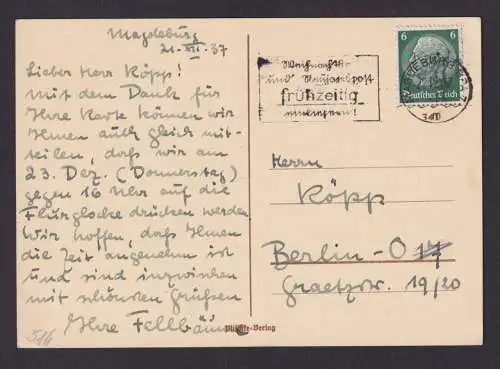 Magdeburg
21. XII. 37
Lieber Herr Köpp!
Mit dem Dank für
Ihre Karte können wir
Ihnen auch gleich mit-
teilen, dass wir am
23. Dez. (Donnerstag)
gegen 16 Uhr auf die
Flurglocke drücken werden
Wir hoffen, dass Ihnen
die Zeit angenehm ist
und sind inzwischen
mit schönsten Grüssen
Ihre Fellbäume
516
Weihnachts-
und Neujahrspost
frühzeitig
einliefern!
6 6
Deutsches Reich
Herrn
Köpp
Berlin-O 17
Graetzstr. 19/20